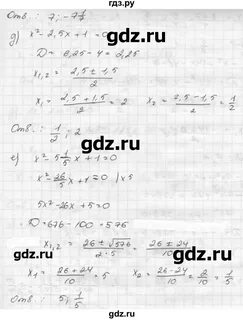 гдз.ру
Отв.: 7; -7 1/2
д) x² - 2,5x + 1 = 0
D = 6,25 - 4 = 2,25
x₁,₂ = (2,5 ± 1,5)/2
x₁ = (2,5 + 1,5)/2 = 2 x₂ = (2,5 - 1,5)/2 = 1/2
Отв.: 1/2; 2
е) x² - 5 1/5 x + 1 = 0
x² - 26/5 x + 1 = 0 | x5
5x² - 26x + 5 = 0
D = 676 - 100 = 576
x₁,₂ = (26 ± √576)/(2·5) = (26 ± 24)/10
x₁ = (26 + 24)/10 = 5 x₂ = (26 - 24)/10 = 2/10 = 1/5
Отв: 5; 1/5